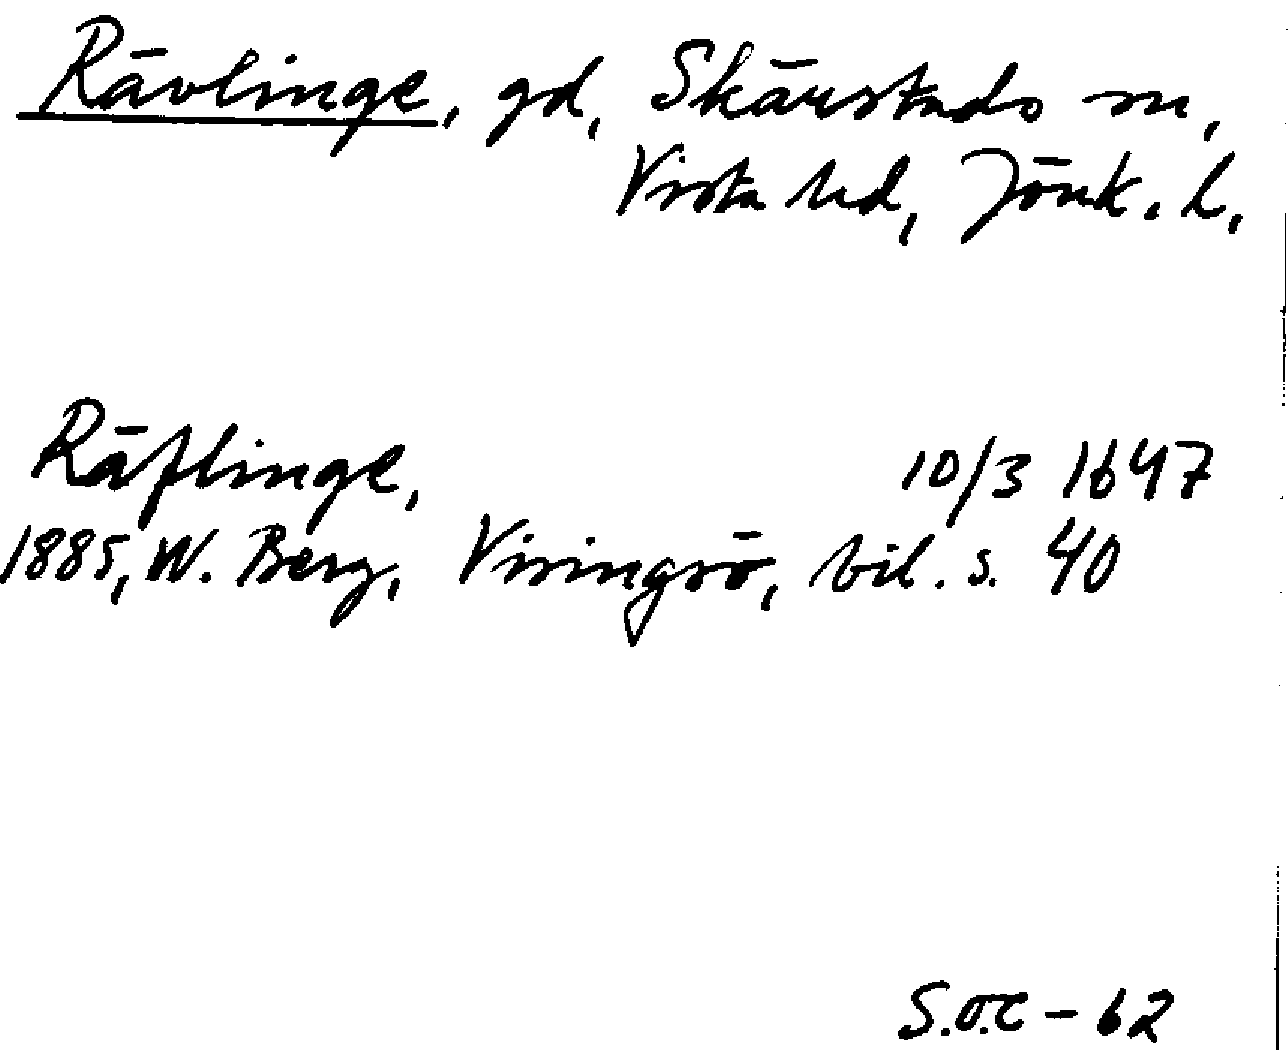 Rävlinge, gd, Skärstads sn,
Vista hd, Jönk. l.
Räflinge, 10/3 1647
1885, W. Berg, Visingsö, bil. s. 40
S.O.C - 62